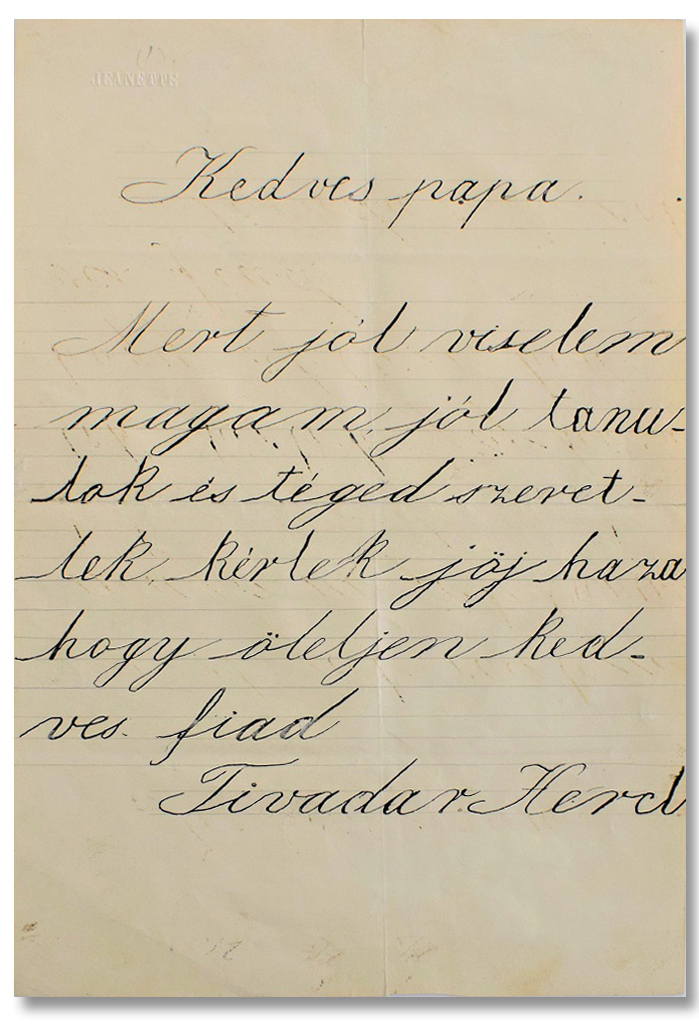 JEANETTE
Kedves papa.
Mert jól viselem
magam, jól tanu-
lok és téged szeret-
lek, kérlek jöj haza
hogy öleljen ked-
ves fiad
Tivadar Hercl